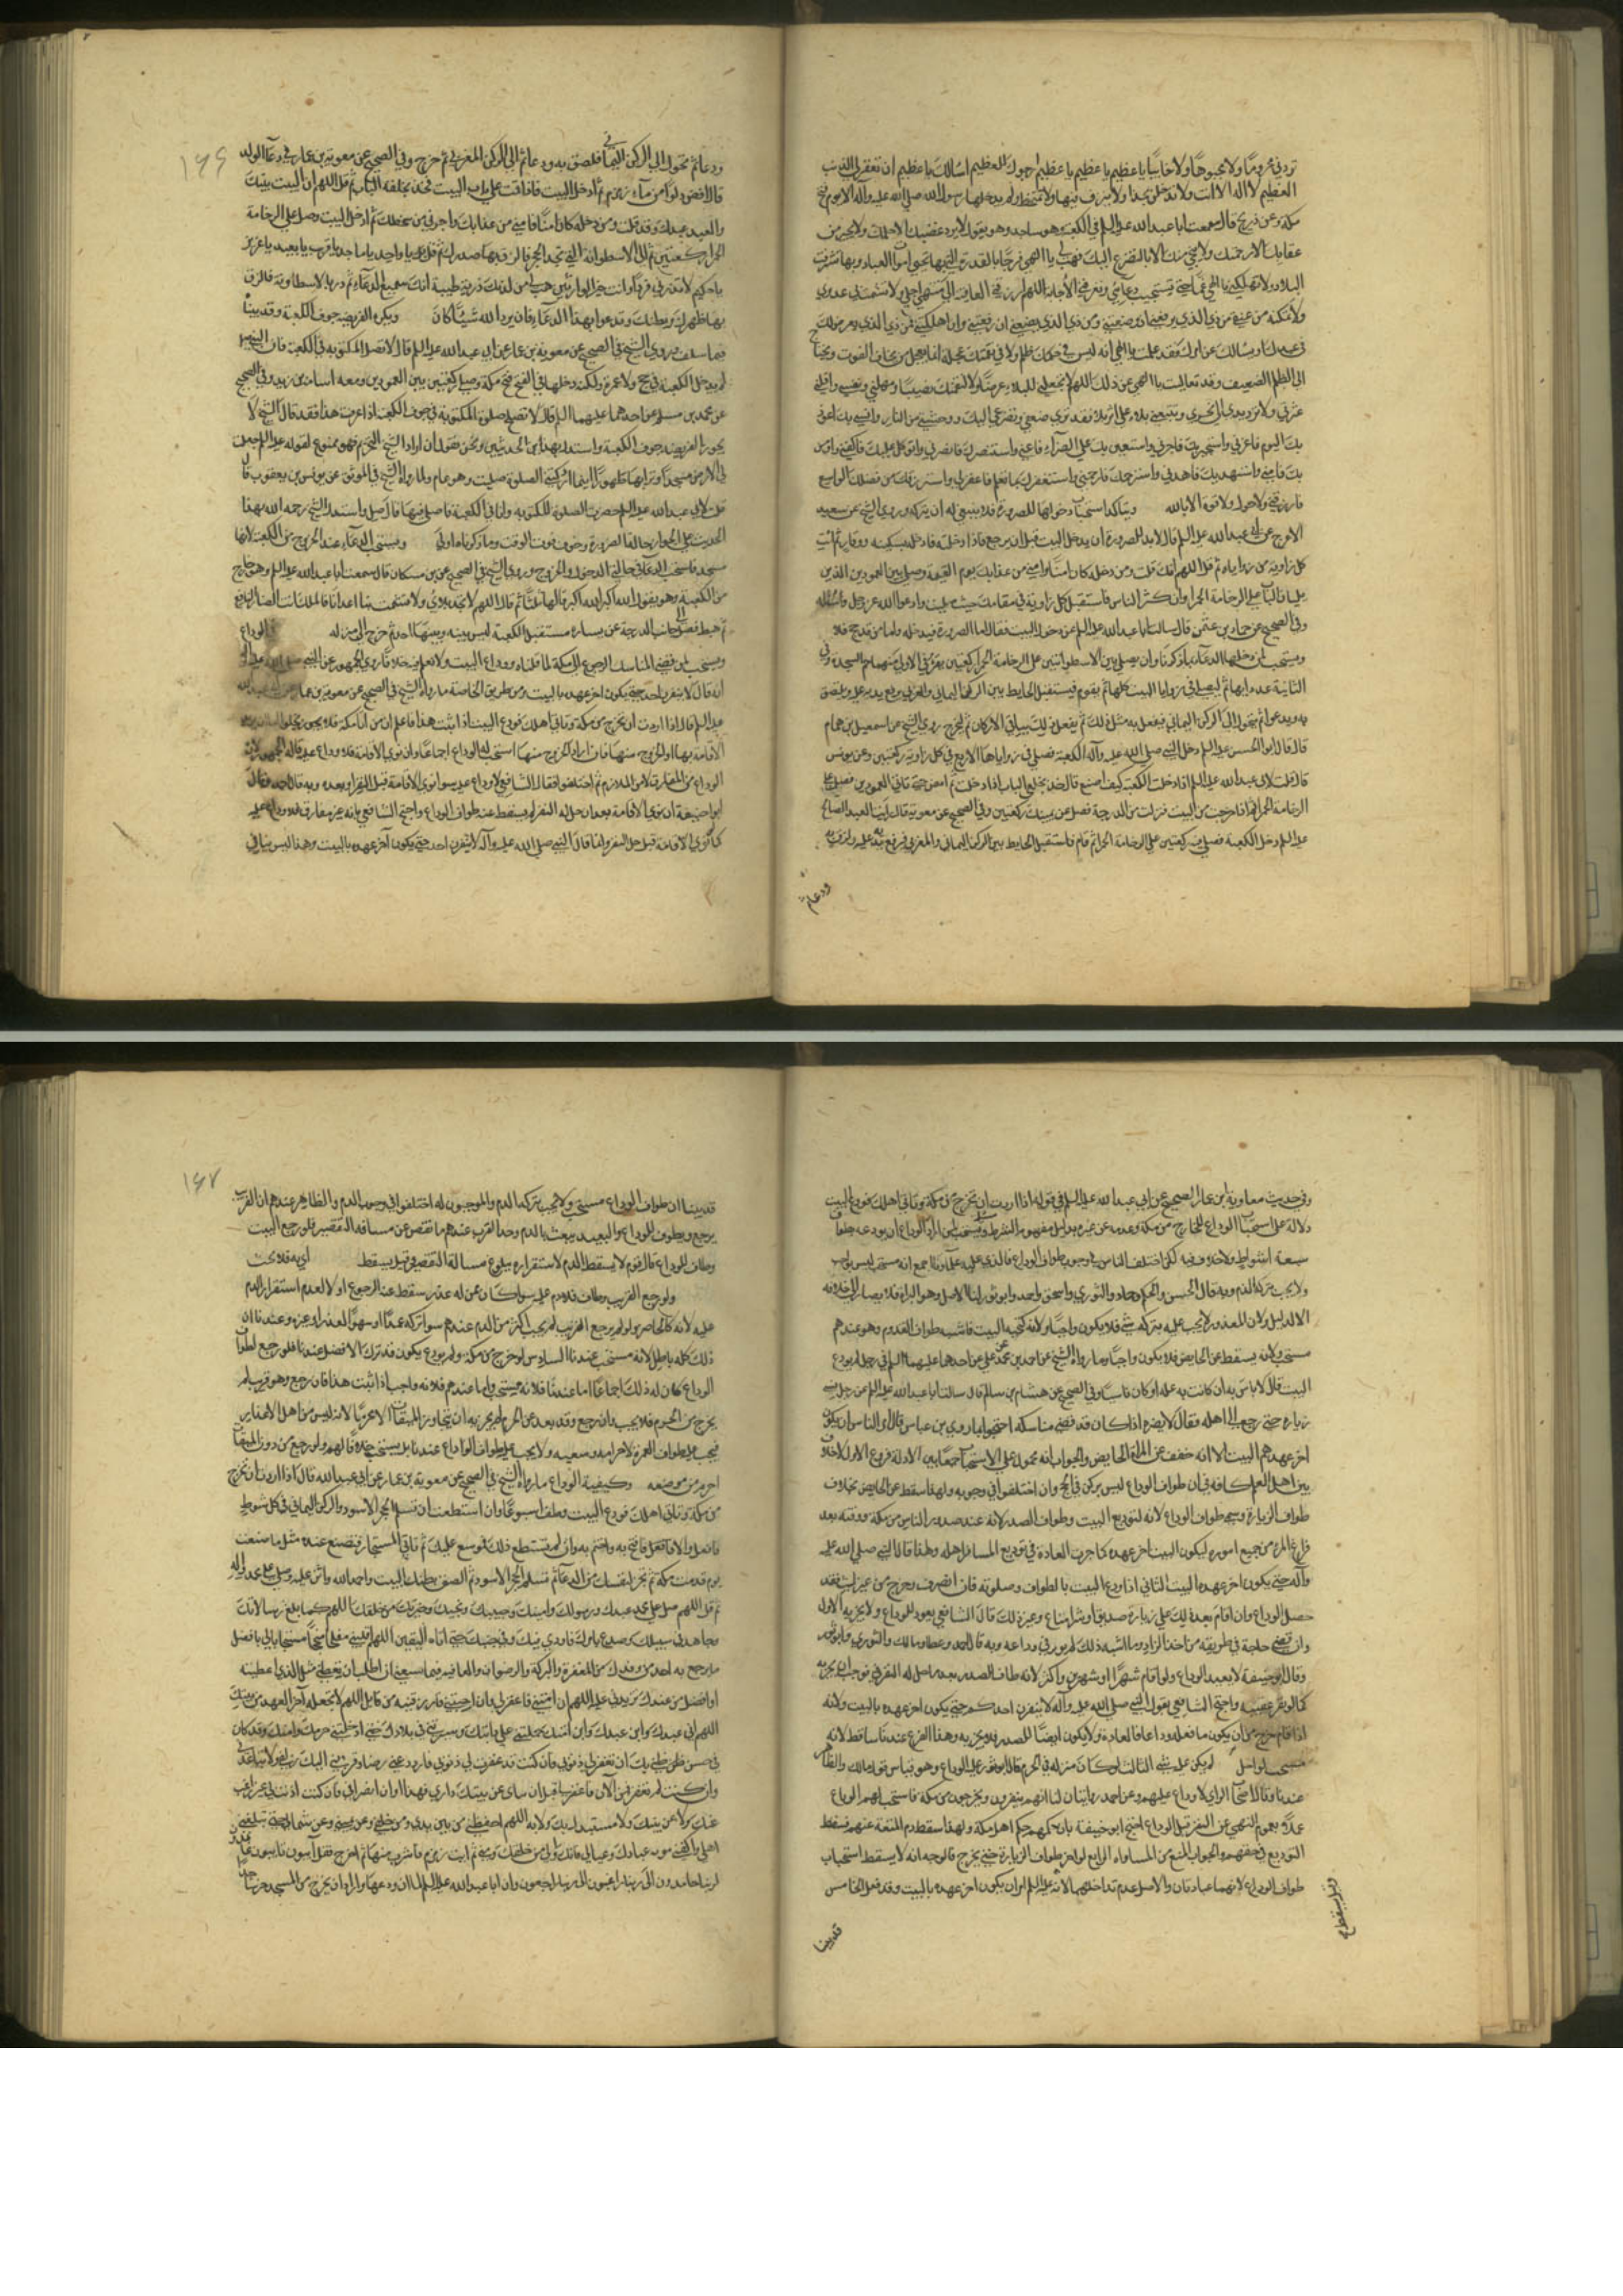 تردني محروما ولا مجبوها ولا خائبا يا عظيم يا عظيم يا عظيم ارجوك للعظيم اسالك يا عظيم ان تغفر لي الذنب
العظيم لا اله الا انت ولا تدخلن بحذاء ولا تبزق فيها ولا تمتخط ولم يدخلها رسول الله صلى الله عليه وآله الا يوم فتح
مكة وعن ذريح قال سمعت ابا عبد الله عليه السلم في الكعبة وهو ساجد وهو يقول لا يرد غضبك الا حلمك ولا يجير من
عقابك الا رحمتك ولا ينجي منك الا بالتضرع اليك فهب لي يا الهي فرجا بالقدرة التي بها تحيي اموات العباد وبها تنشر ميت
البلاد ولا تهلكني يا الهي غما حتى تستجيب دعائي وتعرفني الاجابة اللهم ارزقني العافية الى منتهى اجلي ولا تشمت بي عدوي
ولا تمكنه من عنقي من ذي الذي يرفعني ان وضعتني ومن ذي الذي يضعني ان رفعتني وان اهلكتني فمن ذي الذي يعرض لك
في عبدك او يسالك عن امرك فقد علمت يا الهي انه ليس في حكمك ظلم ولا في نقمتك عجلة انما يعجل من يخاف الفوت ويحتاج
الى الظلم الضعيف وقد تعاليت يا الهي عن ذلك اللهم لا تجعلني للبلاء غرضا ولا لنقمتك نصبا ومهلني ونفسي واقلني
عثرتي ولا ترد يدي في نحري ولا تتبعني ببلاء على اثر بلاء فقد ترى ضعفي وتضرعي اليك ووحشتي من الناس وانسي بك اعوذ
بك اليوم فاعذني واستجير بك فاجرني واستعين بك على الضراء فاعني واستنصرك فانصرني واتوكل عليك فاكفني واومن
بك فامني واستهديك فاهدني واسترحمك فارحمني واستغفرك مما تعلم فاغفر لي واسترزقك من فضلك الواسع
فارزقني ولا حول ولا قوة الا بالله ويتاكد استحباب دخولها للصرورة فلا ينبغي له ان يتركه وروى الشيخ عن سعيد
الاعرج عن ابي عبد الله عليه السلم قال لا بد للصرورة ان يدخل البيت قبل ان يرجع فاذا دخلته فادخله بسكينة ووقار ثم ائت
كل زاوية من زواياه ثم قل اللهم انك قلت ومن دخله كان امنا فامني من عذابك يوم القيمة وصل بين العمودين الذين
يليان الباب على الرخامة الحمراء وان كثر الناس فاستقبل كل زاوية في مقامك حيث صليت وادعوا الله عز وجل واسئله
وفي الصحيح عن حماد بن عثمن قال سالت ابا عبد الله عليه السلم عن دخول البيت فقال اما الصرورة فيدخله واما من قد حج فلا
ويستحب لمن دخلها الدعاء بما ذكرناه وان يصلي بين الاسطوانتين على الرخامة الحمراء ركعتين يقرء في الاولى منهما حم السجدة وفي
الثانية عدد ايها ثم ليصل في زوايا البيت كلها ثم يقوم فيستقبل الحايط بين الركن اليماني والغربي يرفع يديه عليه ويلتصق
به ويدعو ثم يتحول الى الركن اليماني فيفعل به مثل ذلك ثم يفعل ذلك بباقي الاركان ثم ليخرج روى الشيخ عن اسمعيل بن همام
قال قال ابو الحسن عليه السلم دخل النبي صلى الله عليه وآله الكعبة فصلى في زواياها الاربع في كل زاوية ركعتين وعن يونس
قال قلت لابي عبد الله عليه السلم اذا دخلت الكعبة كيف اصنع قال خذ بحلقتي الباب اذا دخلت ثم امض حتى تاتي العمودين فصل على
الرخامة الحمراء ثم اذا خرجت من البيت فنزلت من الدرجة فصل عن يمينك ركعتين وفي الصحيح عن معوية قال رايت العبد الصالح
عليه السلم دخل الكعبة فصلى فيه ركعتين على الرخامة الحمراء ثم قام فاستقبل الحايط بين الركن اليماني والغربي فرفع يده عليه ولزق به
ودعا ثم
١٦٦
ودعا ثم تحول الى الركن اليماني فلصق به ودعا ثم اتى الركن الغربي ثم خرج وفي الصحيح عن معوية بن عمار في دعاء الولد
قال افض دلوا من ماء زمزم ثم ادخل البيت فاذا قمت على باب البيت فخذ بحلقة الباب ثم قل اللهم ان البيت بيتك
والعبد عبدك وقد قلت ومن دخله كان امنا فامني من عذابك واجرني من سخطك ثم ادخل البيت وصل على الرخامة
الحمراء ركعتين ثم قم الى الاسطوانة التي بحذاء الحجر فالزق بها صدرك ثم قل يا واحد يا ماجد يا قريب يا بعيد يا عزيز
يا حكيم لا تذرني فردا وانت خير الوارثين هب لي من لدنك ذرية طيبة انك سميع الدعاء ثم در بالاسطوانة فالزق
بها ظهرك وبطنك وتدعوا بهذا الدعاء فان يرد الله شيئا كان ويكره الفريضة جوف الكعبة وقد بينا
فيما سلف وروى الشيخ في الصحيح عن معوية بن عمار عن ابي عبد الله عليه السلم قال لا تصل المكتوبة في الكعبة فان النبي
لم يدخل الكعبة في حج ولا عمرة ولكنه دخلها في الفتح فتح مكة وصلى ركعتين بين العمودين ومعه اسامة بن زيد وفي الصحيح
عن محمد بن مسلم عن احدهما عليهما السلم قال لا تصلح صلوة المكتوبة في جوف الكعبة اذا عرفت هذا فقد قال الشيخ لا
يجوز الفريضة جوف الكعبة واستدل بهذين الحديثين ونحن نقول ان اراد الشيخ التحريم فهو ممنوع لقوله عليه السلم جعلت
لي الارض مسجدا وترابها طهورا اينما ادركتني الصلوة صليت وهو عام ولما رواه الشيخ في الموثق عن يونس بن يعقوب قال
قلت لابي عبد الله عليه السلم حضرت الصلوة المكتوبة وانا في الكعبة فاصلي فيها قال صل واستدل الشيخ رحمه الله بهذا
الحديث على الجواز حالة الضرورة وخوف فوت الوقت وما ذكرناه اولى ويستحب الدعاء عند الخروج من الكعبة لانها
مسجد فاستحب الدعاء في حالتي الدخول والخروج وروى الشيخ في الصحيح عن بن مسكان قال سمعت ابا عبد الله عليه السلم وهو خارج
من الكعبة وهو يقول الله اكبر الله اكبر قالها ثلثا ثم قال اللهم لا تجهد بلائي ولا تشمت بنا اعداءنا فانك انت الضار النافع
ثم هبط فصلى الى جانب الدرجة عن يساره مستقبل الكعبة ليس بينه وبينها احد ثم خرج الى منزله في الوداع
ويستحب لمن قضى المناسك الرجوع الى مكة لما قلناه ووداع البيت ولا نعلم فيه خلافا روى الجمهور عن النبي صلى الله عليه وآله
انه قال لا ينفرن احد حتى يكون اخر عهده بالبيت ومن طريق الخاصة ما رواه الشيخ في الصحيح عن معوية بن عمار عن ابي عبد الله
عليه السلم قال اذا اردت ان تخرج من مكة وتاتي اهلك فودع البيت اذا ثبت هذا فاعلم ان من اتى مكة فلا يخلو
الاقامة بها او الخروج منها فان اراد الخروج منها استحب له الوداع اجماعا وان نوى الاقامة فلا وداع عليه قاله الجمهور لان
الوداع من المفارق لا من الملازم ثم اختلفوا فقال الشافعي لا وداع عليه سواء نوى الاقامة قبل النفر او بعده وبه قال احمد وقال
ابو حنيفة ان نوى الاقامة بعد ان حل له النفر لم يسقط عنه طواف الوداع واحتج الشافعي بانه غير مفارق فلا وداع عليه
كما لو نوى الاقامة قبل حل النفر وانما قال النبي صلى الله عليه وآله لا ينفرن احد حتى يكون آخر عهده بالبيت وهذا ليس بنافر
وفي حديث معاوية بن عمار الصحيح عن ابي عبد الله عليه السلم في قوله اذا اردت ان تخرج من مكة وتاتي اهلك فودع البيت
دلالة على استحباب الوداع للخارج من مكة وعدمه عن غيره بدليل مفهوم الشرط ويستحب لمن اراد الوداع ان يودعه بطواف
سبعة اشواط ولا خلاف فيه لكن اختلف الناس في وجوب طواف الوداع فالذي عليه علماؤنا اجمع انه مستحب ليس بواجب
ولا يجب بتركه الدم وبه قال الحسن والحكم وحماد والثوري واسحق واحمد وابو ثور لنا الاصل وهو البراءة فلا يصار الى خلافه
الا لدليل ولان المعذور لا يجب عليه بتركه شيء فلا يكون واجبا ولانه كتحية البيت فاشبه طواف القدوم وهو عندهم
مستحب ولانه يسقط عن الحايض فلا يكون واجبا وما رواه الشيخ عن احمد بن محمد عن علي عن احدهما عليهما السلم في رجل لم يودع
البيت قال لا باس به ان كانت به علة او كان ناسيا وفي الصحيح عن هشام بن سالم قال سالت ابا عبد الله عليه السلم عن رجل نسي
زيارة حتى رجع الى اهله فقال لا يضره اذا كان قد قضى مناسكه احتجوا بما روى بن عباس قال امر الناس ان يكون
اخر عهدهم البيت الا انه خفف عن المراة الحايض والجواب انه محمول على الاستحباب جمعا بين الادلة فروع الاول لا خلاف
بين اهل العلم كافة في ان طواف الوداع ليس بركن في الحج وان اختلفوا في وجوبه ولهذا سقط عن الحايض بخلاف
طواف الزيارة وسمي طواف الوداع لانه لتوديع البيت وطواف الصدر لانه عند صدور الناس من مكة ووقته بعد
فراغ المرء من جميع اموره ليكون البيت اخر عهده كما جرت العادة في توديع المسافر اهله ولهذا قال النبي صلى الله عليه
وآله حتى يكون اخر عهده البيت الثاني اذا ودع البيت بالطواف وصلوته فان انصرف وخرج من غير لبث فقد
حصل الوداع وان اقام بعد ذلك على زيارة صديق او شراء متاع وغير ذلك قال الشافعي يعود للوداع ولا يجزيه الاول
وان قضى حاجة في طريقه من اخذ الزاد وما اشبه ذلك لم يؤثر في وداعه وبه قال احمد وعطا ومالك والثوري وابو ثور
وقال ابو حنيفة لا يعيد الوداع ولو اقام شهرا او شهرين واكثر لانه طاف الصدر بعد ما حل له النفر في فوجب ان يجزيه
كما لو نفر عقيبه واحتج الشافعي بقول النبي صلى الله عليه وآله لا ينفرن احدكم حتى يكون اخر عهده بالبيت ولانه
اذا اقام خرج من ان يكون ما فعله وداعا في العادة ولا يكون ايضا للصدر فلا يجزيه وهذا الفرع عندنا ساقط لانه
مستحب لو اخل لم يكن عليه شيء الثالث لو كان منزله في الحرم قال ابو ثور عليه الوداع وهو قياس قول مالك والظاهر
عندنا وقال اصحاب الراي لا وداع عليهم وعن احمد روايتان لنا انهم ينفرون ويخرجون من مكة فاستحب لهم الوداع
عملا بعموم النهي عن النفر قبل الوداع احتج ابو حنيفة بان حكمهم حكم اهل مكة ولهذا سقط دم المتعة عنهم فسقط
التوديع في حقهم والجواب المنع من المساواة الرابع لو اخر طواف الزيارة حتى يخرج فالوجه انه لا يسقط استحباب
طواف الوداع لانهما عبادتان والاصل عدم تداخلهما لانه عليه السلم امر ان يكون اخر عهده بالبيت وقد فعل الخامس
قد بينا
١٦٧
قد بينا ان طواف الوداع مستحب ولا يجب بتركه الدم والموجبون له اختلفوا في وجوب الدم والظاهر عندهم ان القريب
يرجع ويطوف للوداع والبعيد يبعث بالدم وحد القرب عندهم ما نقص عن مسافة التقصير فلو رجع البيت
وطاف للوداع قال قوم لا يسقط الدم لاستقراره ببلوغ مسافة القصر وقيل يسقط
ولو رجع القريب وطاف فلا دم عليه سواء كان ممن له عذر يسقط عنه الرجوع او لا لعدم استقرار الدم
عليه لانه كالحاضر ولو لم يرجع القريب لم يجب اكثر من الدم عندهم سواء تركه عمدا او سهوا لعذر او غيره وعندنا ان
ذلك كله باطل لانه مستحب عندنا السادس لو خرج من مكة ولم يودع يكون قد ترك الافضل عندنا فلو رجع لطواف
الوداع كان له ذلك اجماعا اما عندنا فلانه مستحب واما عندهم فلانه واجب اذا ثبت هذا فان رجع وهو قريب لم
يخرج من الحرم فلا يجب وان رجع وقد بعد عن الحرم لم يجز به ان يتجاوز الميقات الا محرما لانه ليس من اهل الاعذار
فيجب عليه طواف العمرة لاحرامه وسعيه ولا يجب عليه طواف الوداع عندنا بل يستحب خلافا لهم ولو رجع من دون الميقات
احرم من موضعه وكيفية الوداع ما رواه الشيخ في الصحيح عن معوية بن عمار عن ابي عبد الله قال اذا اردت ان تخرج
من مكة وتاتي اهلك فودع البيت وطف اسبوعا وان استطعت ان تستلم الحجر الاسود والركن اليماني في كل شوط
فافعل والا فافتح به واختم به وان لم تستطع ذلك فموسع عليك ثم تاتي المستجار فتصنع عنده مثل ما صنعت
يوم قدمت مكة ثم تخير لنفسك من الدعاء ثم تستلم الحجر الاسود ثم الصق بطنك بالبيت واحمد الله واثن عليه وصل على محمد وآله
ثم قل اللهم صل على محمد عبدك ورسولك وامينك وحبيبك ونجيك وخيرتك من خلقك اللهم كما بلغ رسالاتك
وجاهد في سبيلك وصدع بامرك واوذي فيك وفي جنبك حتى اتاه اليقين اللهم اقلبني مفلحا منجحا مستجابا لي بافضل
ما يرجع به احد من وفدك من المغفرة والبركة والرضوان والعافية فيما يسعني ان اطلب ان تعطيني مثل الذي اعطيته
او افضل من عندك وتزيدني عليه اللهم ان امتني فاغفر لي وان احييتني فارزقنيه من قابل اللهم لا تجعله آخر العهد من بيتك
اللهم اني عبدك وابن عبدك وابن امتك حملتني على دابتك وسيرتني في بلادك حتى ادخلتني حرمك وامنك وقد كان
في حسن ظني بك ان تغفر لي ذنوبي فان كنت قد غفرت لي ذنوبي فازدد عني رضا وقربني اليك زلفى ولا تباعدني
وان كنت لم تغفر لي فمن الآن فاغفر لي قبل ان تناى عن بيتك داري فهذا اوان انصرافي فان كنت اذنت لي غير راغب
عنك ولا عن بيتك ولا مستبدل بك ولا به اللهم احفظني من بين يدي ومن خلفي وعن يميني وعن شمالي حتى تبلغني
اهلي واكفني مؤنة عبادك وعيالي فانك ولي من خلقك ومني ثم ائت زمزم فاشرب منها ثم اخرج فقل آئبون تائبون عابدون
لربنا حامدون الى ربنا راغبون الى ربنا راجعون وان ابا عبد الله عليه السلم لما ان ودعها واراد ان يخرج من المسجد خر ساجدا